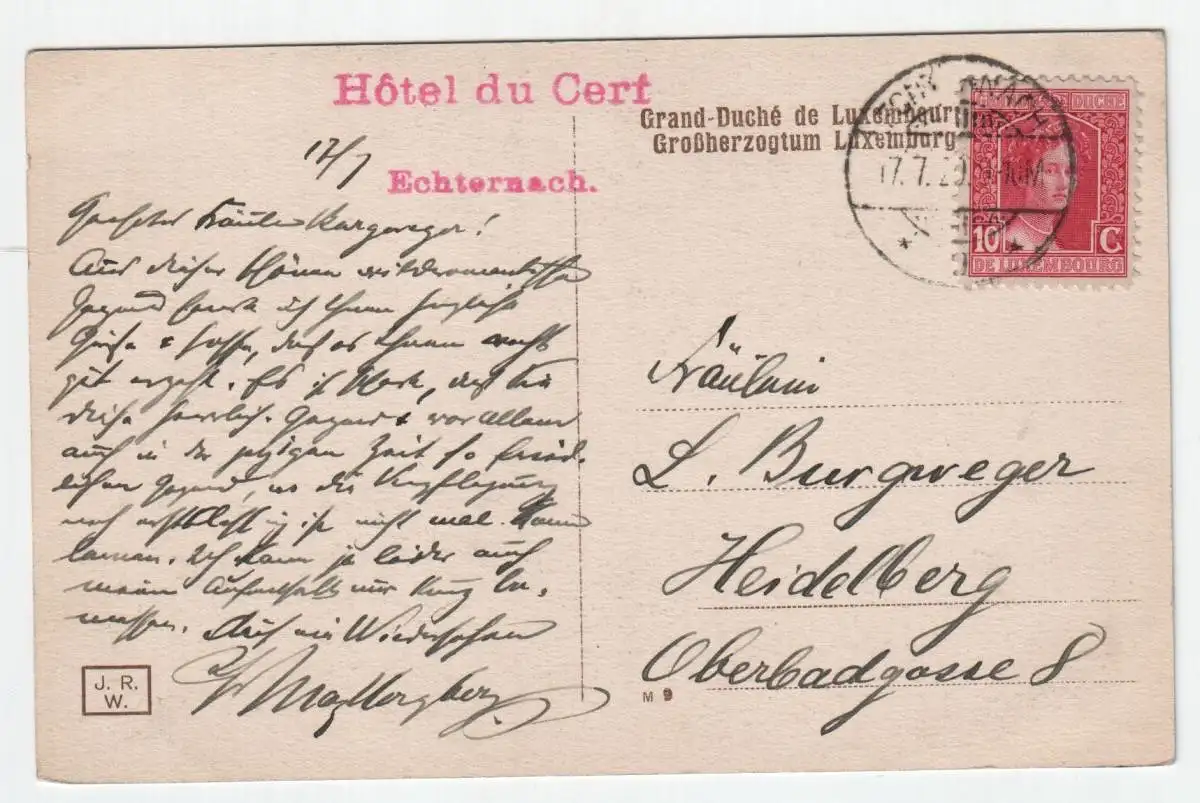 Hôtel du Cerf
Grand-Duché de Luxembourg
Großherzogtum Luxemburg
17/7
Echternach.
17. 7. 20.
DUCHÉ
10 C.
DE LUXEMBOURG
Geehrtes Fräulein Burgweger!
Aus dieser schönen wildromantischen
Gegend sende ich Ihnen herzliche
Grüße & hoffe, daß es Ihnen recht
gut ergeht. Es ist schade, daß Sie
diese herrliche Gegend & vor Allem
auch in der jetzigen Zeit so fried-
lichen Gegend, wo die Verpflegung
noch erstklassig ist nicht mal kennen
lernen. Ich kann ja leider auch
meinen Aufenthalt nur kurz be-
messen. Auf ein Wiedersehen
Fräulein
L. Burgweger
Heidelberg
Oberbadgasse 8
J. R.
W.
M 9